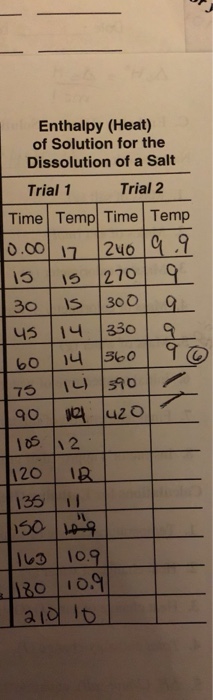 Enthalpy (Heat)
of Solution for the
Dissolution of a Salt
Trial 1 Trial 2
Time Temp Time Temp
0.00 17 240 9.9
15 15 270 9
30 15 300 9
45 14 330 9
60 14 360 9 6
75 14 390
90 12 420
105 12
120 12
135 11
150 11
165 10.9
180 10.9
210 10